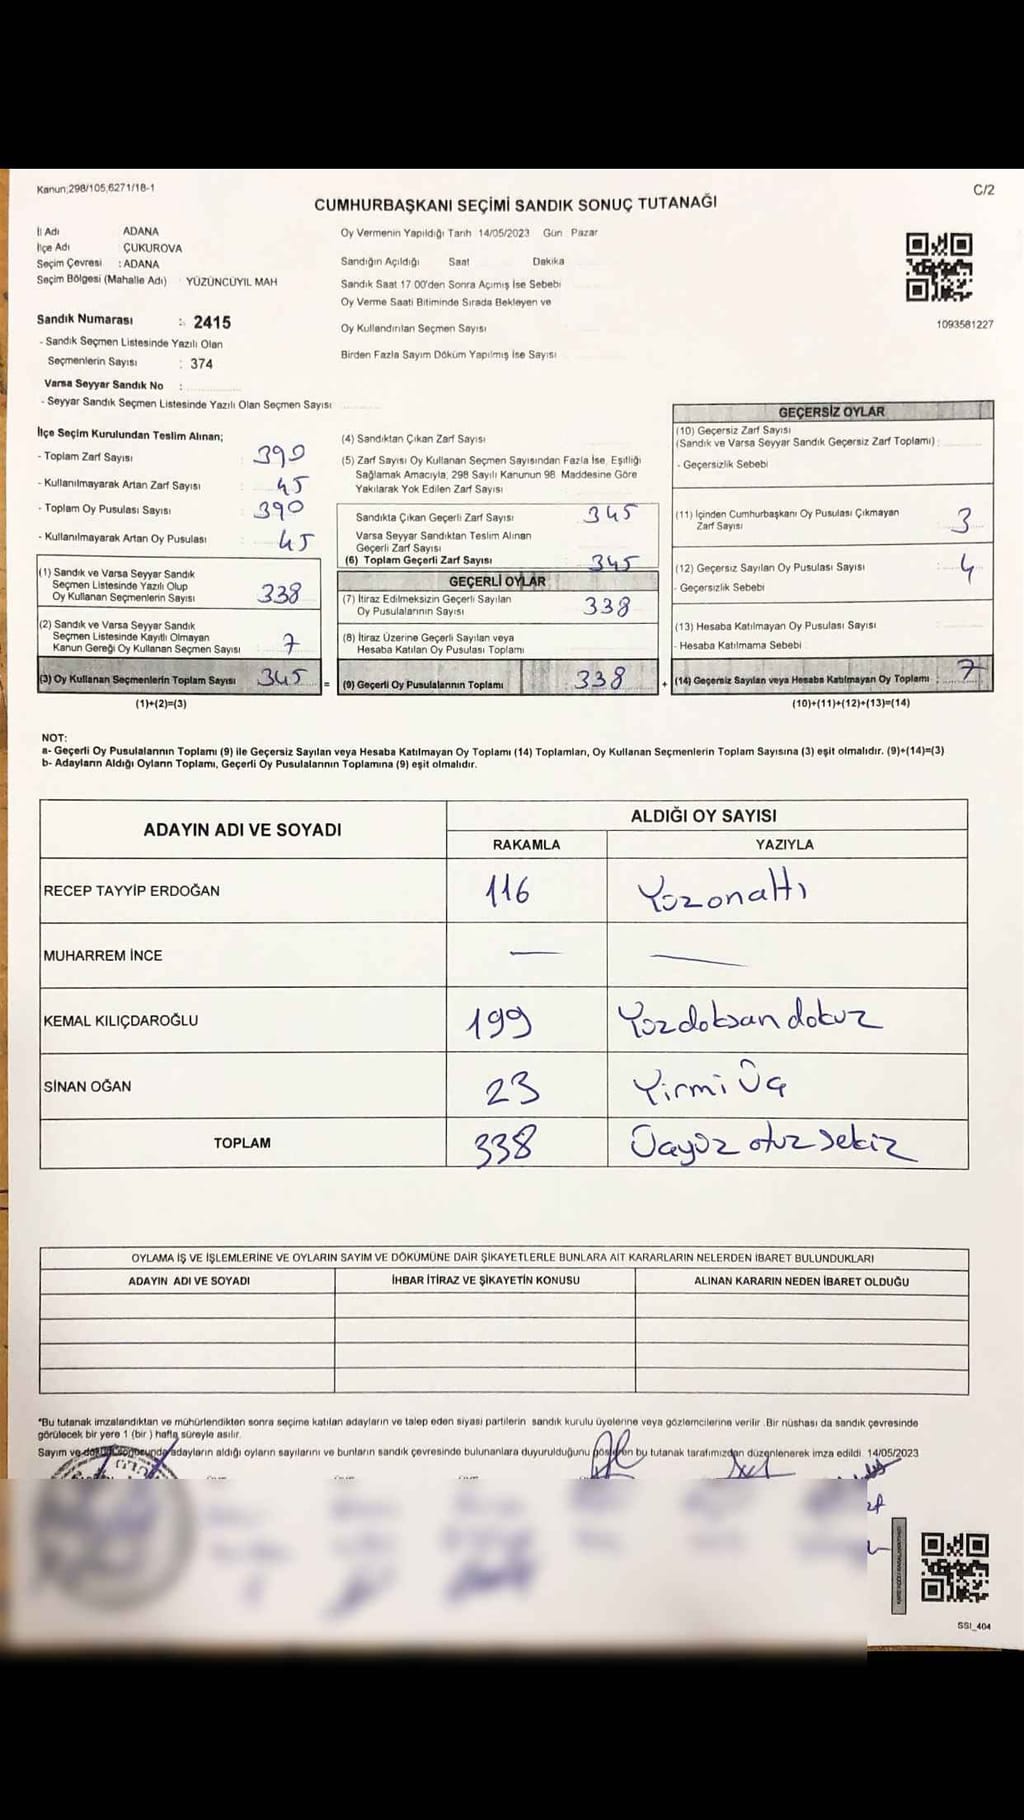 Kanun;298/105,6271/18-1
C/2
CUMHURBAŞKANI SEÇİMİ SANDIK SONUÇ TUTANAĞI
İl Adı ADANA
İlçe Adı ÇUKUROVA
Seçim Çevresi : ADANA
Seçim Bölgesi (Mahalle Adı) YÜZÜNCÜYIL MAH
Sandık Numarası : 2415
- Sandık Seçmen Listesinde Yazılı Olan
Seçmenlerin Sayısı : 374
Varsa Seyyar Sandık No :
- Seyyar Sandık Seçmen Listesinde Yazılı Olan Seçmen Sayısı
Oy Vermenin Yapıldığı Tarih 14/05/2023 Gün Pazar
Sandığın Açıldığı Saat Dakika
Sandık Saat 17 00'den Sonra Açımış İse Sebebi
Oy Verme Saati Bitiminde Sırada Bekleyen ve
Oy Kullandırılan Seçmen Sayısı
Birden Fazla Sayım Döküm Yapılmış İse Sayısı
1093581227
İlçe Seçim Kurulundan Teslim Alınan;
- Toplam Zarf Sayısı 390
- Kullanılmayarak Artan Zarf Sayısı 45
- Toplam Oy Pusulası Sayısı 390
- Kullanılmayarak Artan Oy Pusulası 45
(1) Sandık ve Varsa Seyyar Sandık
Seçmen Listesinde Yazılı Olup
Oy Kullanan Seçmenlerin Sayısı 338
(2) Sandık ve Varsa Seyyar Sandık
Seçmen Listesinde Kayıtlı Olmayan
Kanun Gereği Oy Kullanan Seçmen Sayısı 7
(3) Oy Kullanan Seçmenlerin Toplam Sayısı 345 =
(1)+(2)=(3)
(4) Sandıktan Çıkan Zarf Sayısı
(5) Zarf Sayısı Oy Kullanan Seçmen Sayısından Fazla İse, Eşitliği
Sağlamak Amacıyla, 298 Sayılı Kanunun 98. Maddesine Göre
Yakılarak Yok Edilen Zarf Sayısı
Sandıkta Çıkan Geçerli Zarf Sayısı 345
Varsa Seyyar Sandıktan Teslim Alınan
Geçerli Zarf Sayısı
(6) Toplam Geçerli Zarf Sayısı 345
GEÇERLİ OYLAR
(7) İtiraz Edilmeksizin Geçerli Sayılan
Oy Pusulalarının Sayısı 338
(8) İtiraz Üzerine Geçerli Sayılan veya
Hesaba Katılan Oy Pusulası Toplamı
(9) Geçerli Oy Pusulalarının Toplamı 338 +
GEÇERSİZ OYLAR
(10) Geçersiz Zarf Sayısı
(Sandık ve Varsa Seyyar Sandık Geçersiz Zarf Toplamı) :
- Geçersizlik Sebebi
(11) İçinden Cumhurbaşkanı Oy Pusulası Çıkmayan
Zarf Sayısı 3
(12) Geçersiz Sayılan Oy Pusulası Sayısı 4
- Geçersizlik Sebebi
(13) Hesaba Katılmayan Oy Pusulası Sayısı
- Hesaba Katılmama Sebebi
(14) Geçersiz Sayılan veya Hesaba Katılmayan Oy Toplamı : 7
(10)+(11)+(12)+(13)=(14)
NOT:
a- Geçerli Oy Pusulalarının Toplamı (9) ile Geçersiz Sayılan veya Hesaba Katılmayan Oy Toplamı (14) Toplamları, Oy Kullanan Seçmenlerin Toplam Sayısına (3) eşit olmalıdır. (9)+(14)=(3)
b- Adayların Aldığı Oyların Toplamı, Geçerli Oy Pusulalarının Toplamına (9) eşit olmalıdır.
ADAYIN ADI VE SOYADI
ALDIĞI OY SAYISI
RAKAMLA YAZIYLA
RECEP TAYYİP ERDOĞAN 116 Yüzonaltı
MUHARREM İNCE — —
KEMAL KILIÇDAROĞLU 199 Yüzdoksandokuz
SİNAN OĞAN 23 Yirmi Üç
TOPLAM 338 Üçyüz otuz sekiz
OYLAMA İŞ VE İŞLEMLERİNE VE OYLARIN SAYIM VE DÖKÜMÜNE DAİR ŞİKAYETLERLE BUNLARA AİT KARARLARIN NELERDEN İBARET BULUNDUKLARI
ADAYIN ADI VE SOYADI İHBAR İTİRAZ VE ŞİKAYETİN KONUSU ALINAN KARARIN NEDEN İBARET OLDUĞU
*Bu tutanak imzalandıktan ve mühürlendikten sonra seçime katılan adayların ve talep eden siyasi partilerin sandık kurulu üyelerine veya gözlemcilerine verilir .Bir nüshası da sandık çevresinde
görülecek bir yere 1 (bir ) hafta süreyle asılır.
Sayım ve döküm sonucunda adayların aldığı oyların sayılarını ve bunların sandık çevresinde bulunanlara duyurulduğunu gösteren bu tutanak tarafımızdan düzenlenerek imza edildi. 14/05/2023
SSI_404